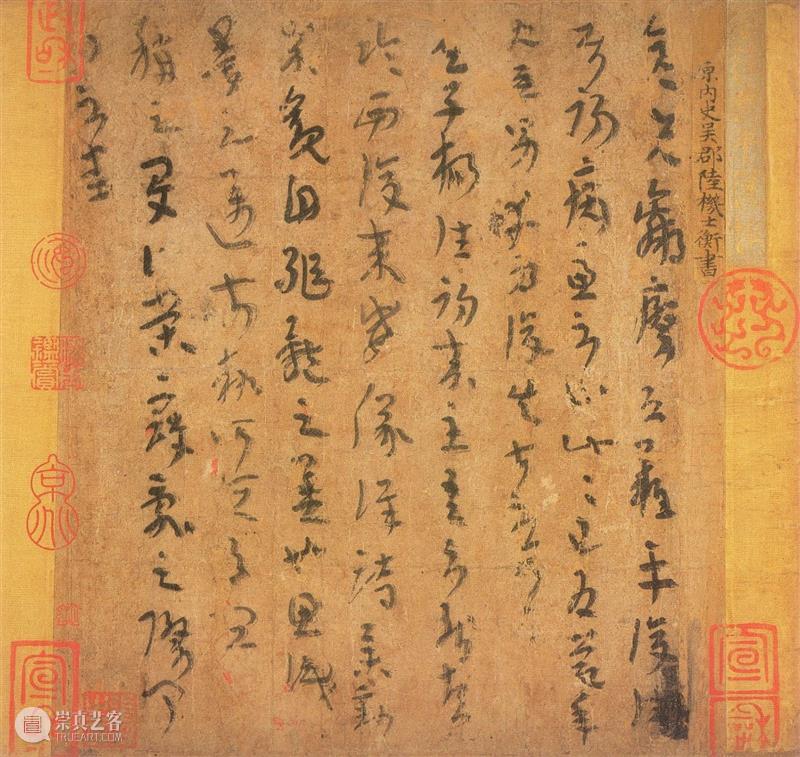 晉內史吳郡陸機士衡書
彥先羸瘵恐難平復往屬
初病慮不止此此已為慶承
使唯男幸為復失前憂耳
吳子楊往初來主吾不能盡
臨西復來威儀詳跱舉動
成觀自軀體之美也思識
量之邁前執所恒有宜
稱之夏伯榮寇亂之際聞
問不悉
崇真艺客
TRUEART.COM